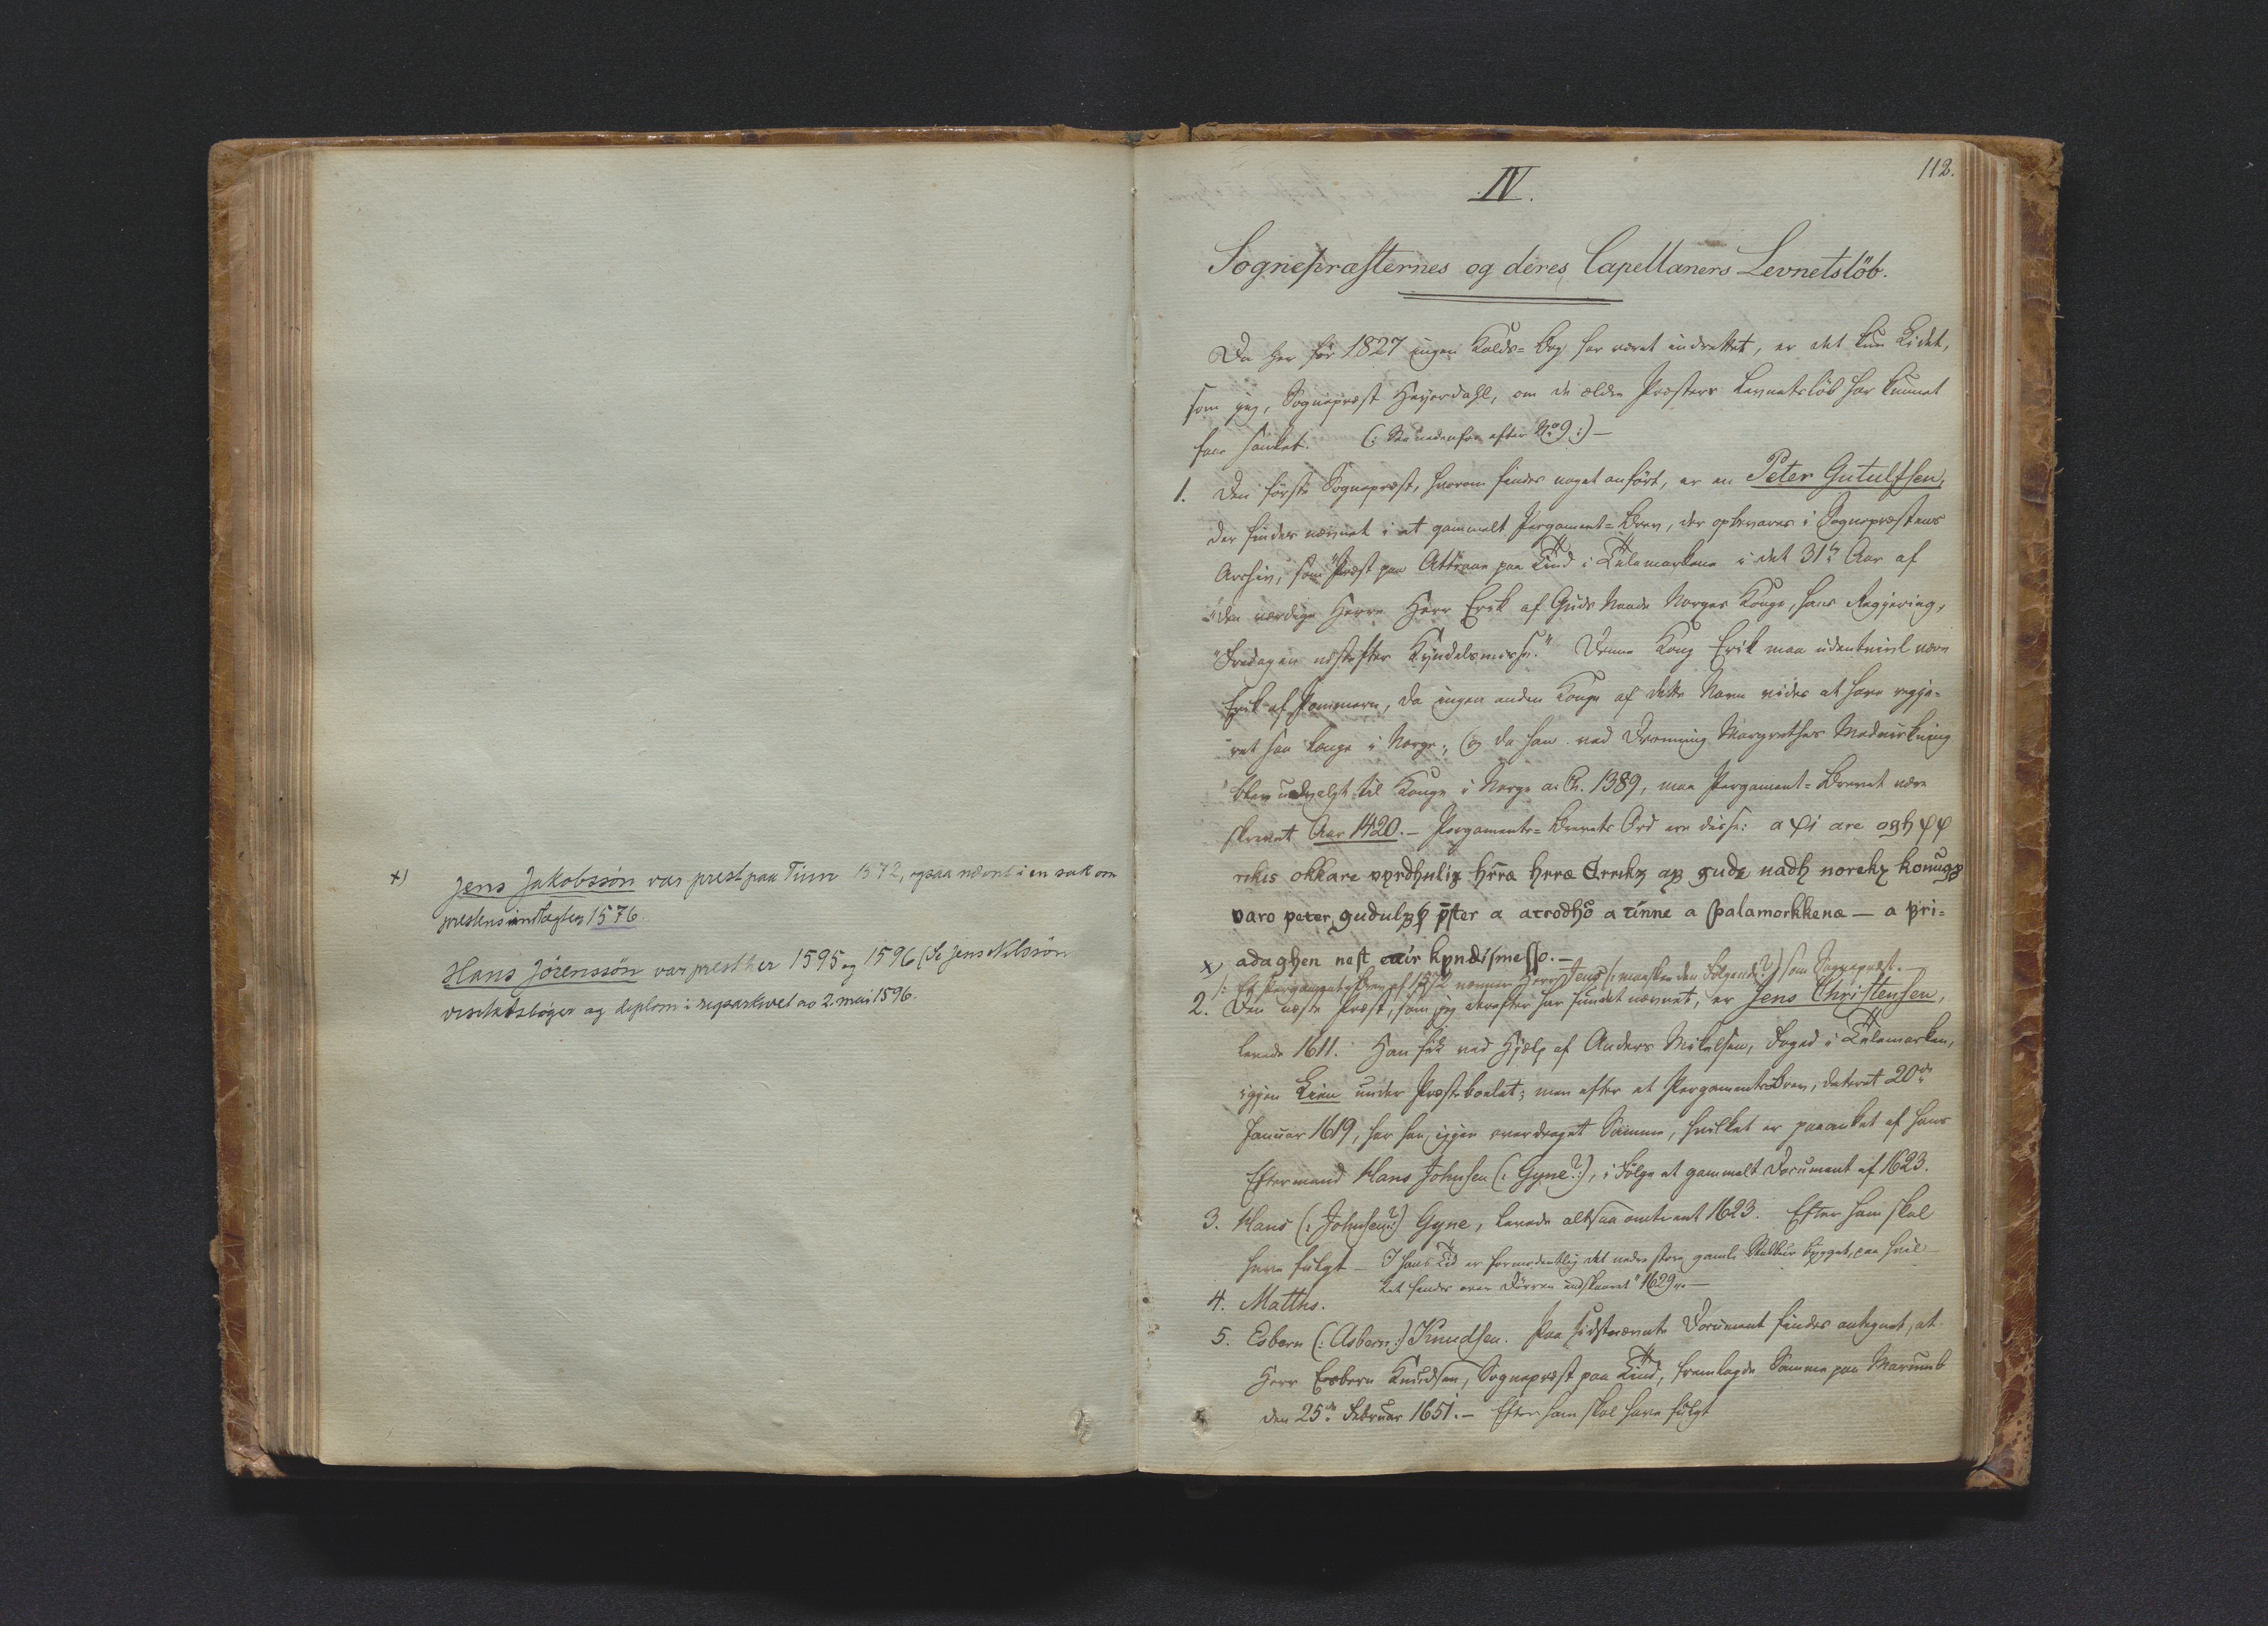 x) Jens Jakobssön var prest paa Tinn 1572, ogsaa nævnt i en sak om
prestens indtægter 1576.
Hans Jörenssön var prest her 1595 og 1596 (Se Jens Nilssön
visitatsbøger og diplom i rigsarkivet av 2. mai 1596.
112.
IV.
Sognepræsternes og deres Capellaners Levnetslöb.
Da her för 1827 ingen Kalds-Bog har været indrettet, er det kun Lidet,
som jeg, Sognepræst Heyerdahl, om de ældre Præsters Levnetslöb har kunnet
faae samlet. (: See nedenfor efter No 9 :) —
1. Den förste Sognepræst, hvorom findes noget anfört, er en Peter Gutulfsen,
der findes nævnet i et gammelt Pergament-Brev, der opbevares i Sognepræstens
Archiv, som Præst paa Attraae paa Tind i Tellemarken i det 31te Aar af
"den værdige Herre Herr Erik af Guds Naade Norges Konge, hans Regjering,
"Fredagen næstefter Kyndelsmisse." Denne Kong Erik maa udentvivl være
Erik af Pommern, da ingen anden Konge af dette Navn vides at have regje-
ret saa længe i Norge; og da han ved Dronning Margrethes Medvirkning
blev udvalgt til Konge i Norge a. Ch. 1389, maa Pergament-Brevet være
skrevet Aar 1420. — Pergaments-Brevets Ord ere disse: a xi are ogh xx
rikis okkare vyrdhulig herræ herræ Erriks af gudz nadh noreks konugx
varo peter gudulfs pster a atrodho a tinne a þalamorkkenæ — a fri-
x) adaghen nest eftir kyndismesso. —
/: Et Pergaments Brev af 1572 nævner Herr Jens (: maaskee den Følgende?) som Sognepræst. —
2. Den næste Præst, som jeg derefter har fundet nævnet, er Jens Christensen,
levede 1611. Han fik ved Hjelp af Anders Mikelsen, Foged i Tellemarken,
igjen Lien under Præstebolet; men efter et Pergaments Brev, dateret 20de
Januar 1619, har han igjen overdraget Samme, hvilket er paaanket af hans
Eftermand Hans Johnsen (: Gyne?:), i Fölge et gammelt Document af 1623.
3. Hans (: Johnsen?:) Gyne, levede altsaa omtrent 1623. Efter ham skal
have fulgt — I hans Tid er formodentlig det nedre store gamle Stabbur bygget, paa hvil-
ket findes over Dörren indskaaret "1629". —
4. Matths.
5. Esbern (: Asbern:) Knudsen. Paa sidstnævnte Document findes antegnet, at
Herr Esbern Knudsen, Sognepræst paa Tind, fremlagde Samme paa Marumb
den 25de Februar 1651. — Efter ham skal have fulgt